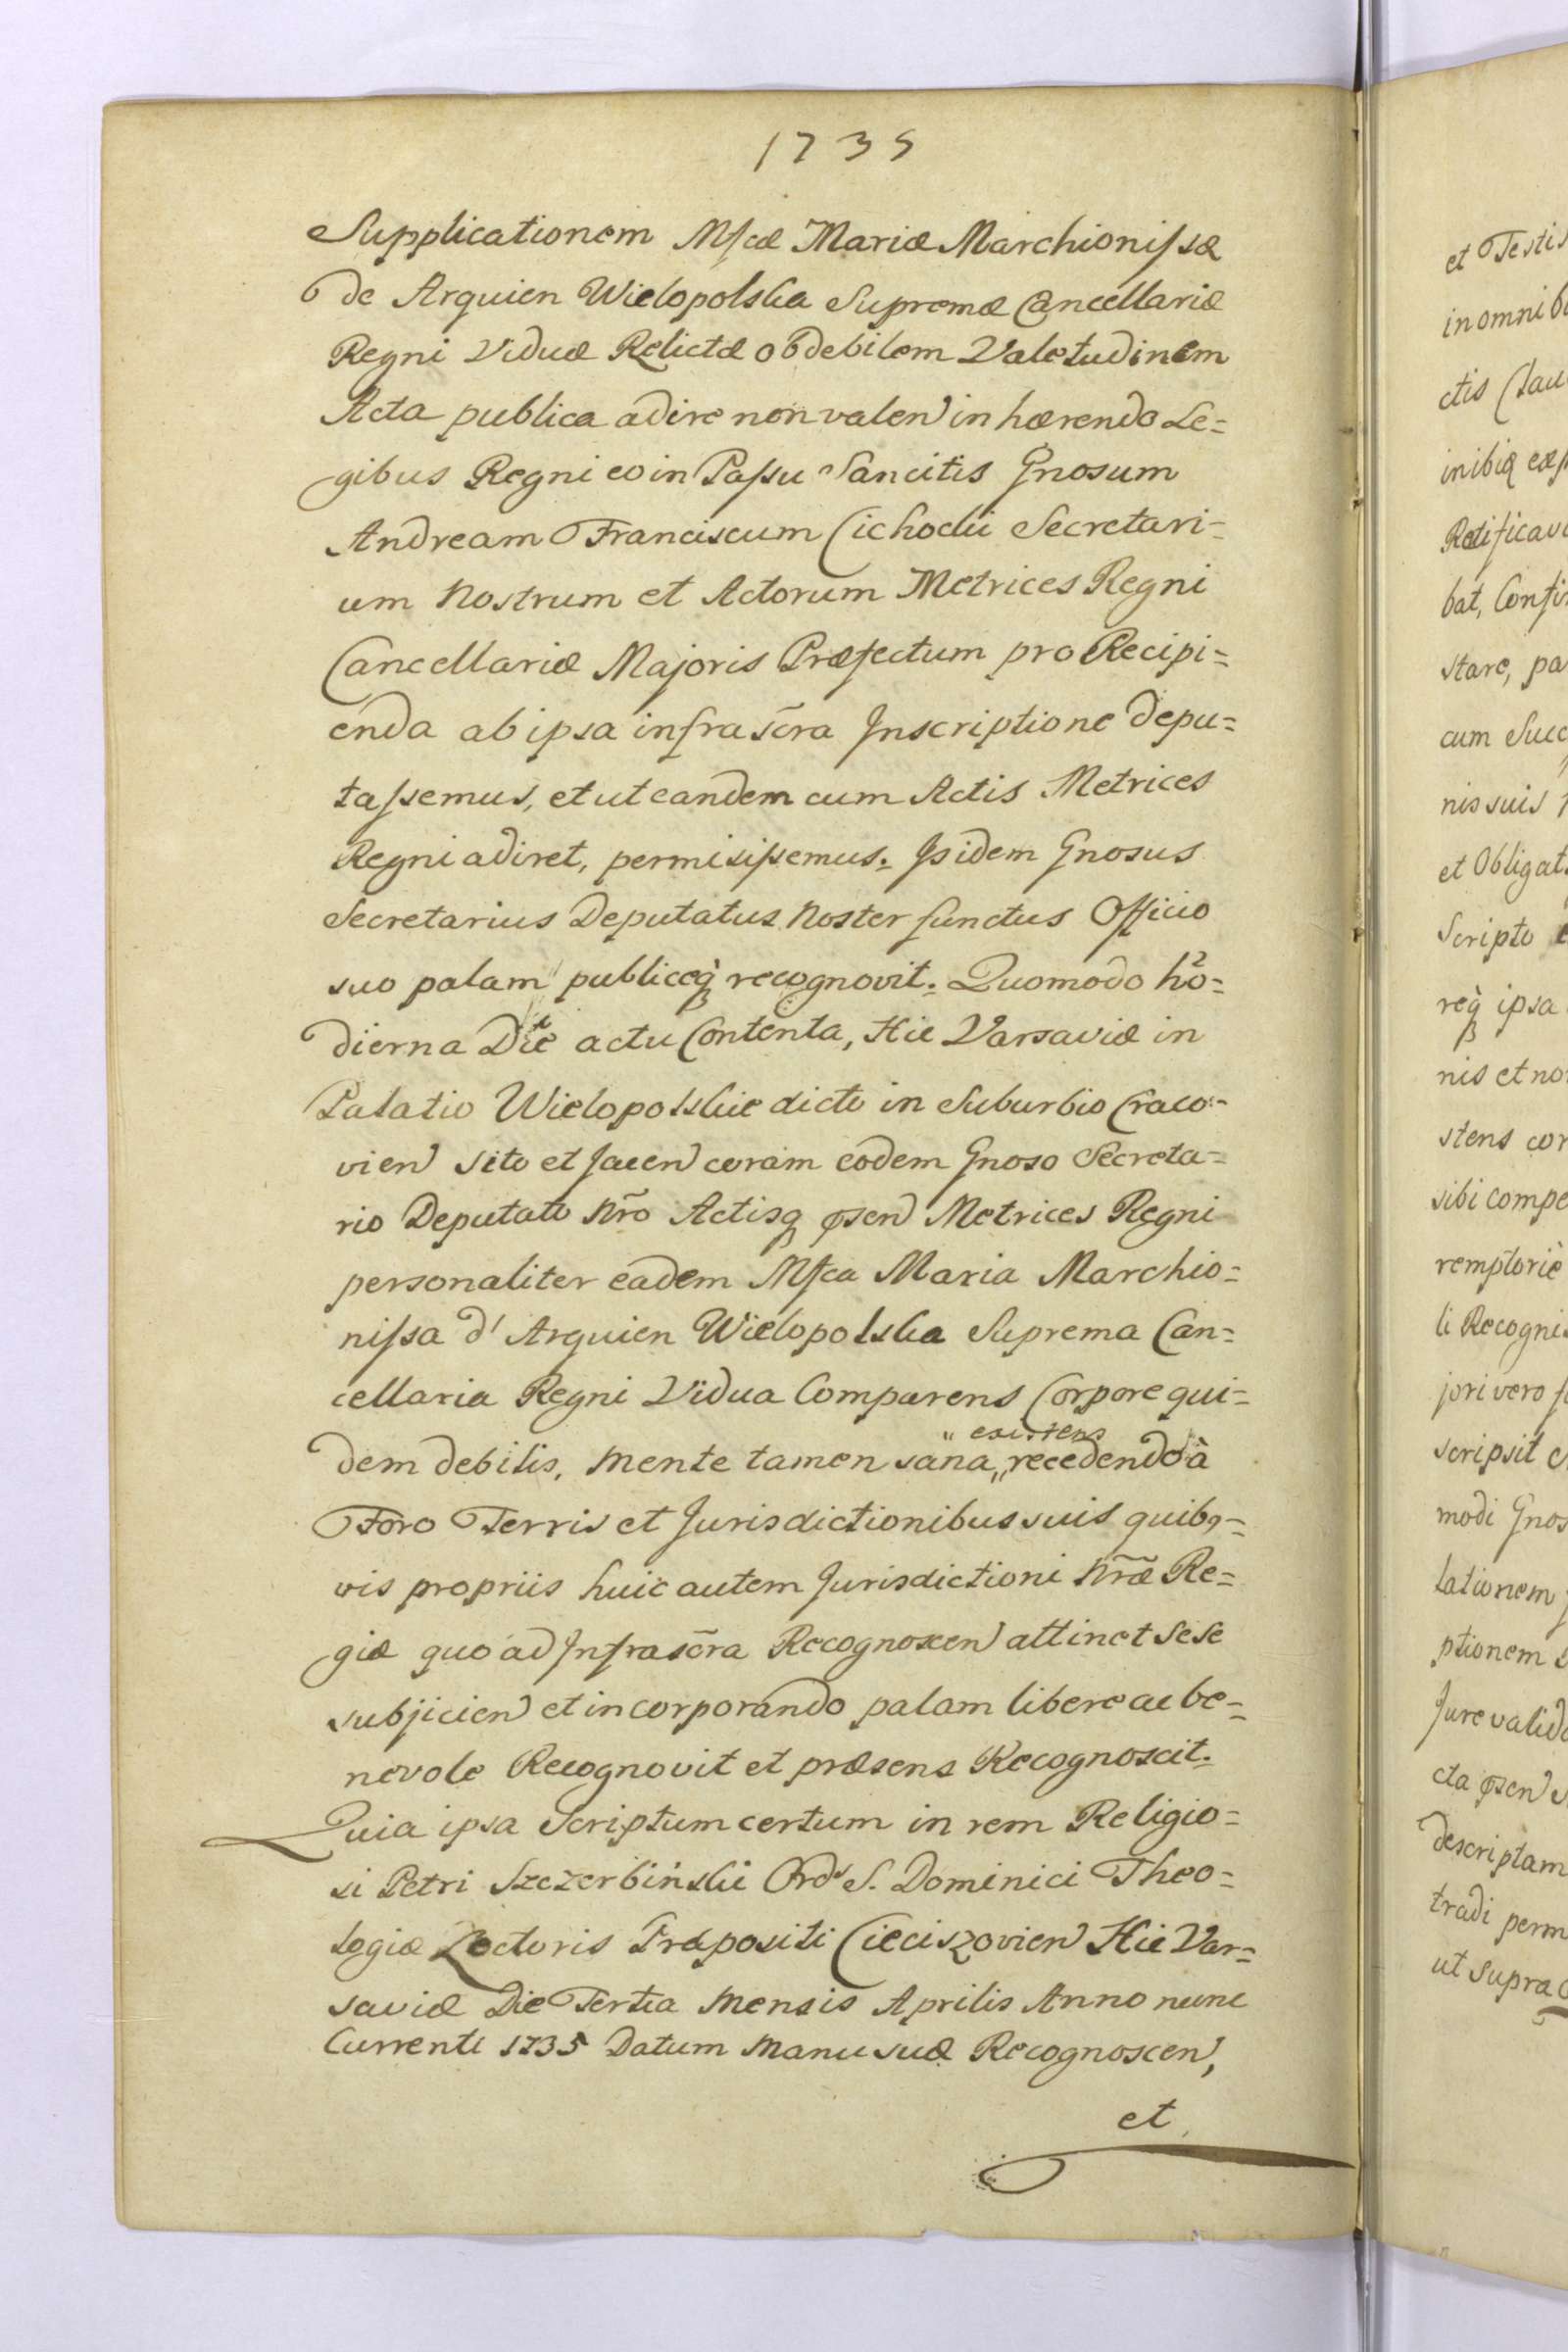 1735
Supplicationem Mfcæ Mariæ Marchionissæ
de Arquien Wielopolska Supremæ Cancellariæ
Regni Viduæ Relictæ ob debilem Valetudinem
Acta publica adire non valen inhærendo Le=
gibus Regni eo in Passu Sancitis Gnosum
Andream Franciscum Cichocki Secretari-
um Nostrum et Actorum Metrices Regni
Cancellariæ Majoris Præfectum pro Recipi=
enda ab ipsa infrascr̃a Inscriptione depu=
tassemus, et ut eandem cum Actis Metrices
Regni adiret, permisissemus. Isidem Gnosus
Secretarius Deputatus Noster functus Officio
suo palam publiceq̀ recognovit. Quomodo ho=
dierna Die actu Contenta, Hic Varsaviæ in
Palatio Wielopolskie dicto in Suburbio Craco-
vien sito et jacen coram eodem Gnoso Secreta=
rio Deputato Nr̃o Actisq psen Metrices Regni
personaliter eadem Mfca Maria Marchio=
nissa d' Arquien Wielopolska Suprema Can=
cellaria Regni Vidua Comparens Corpore qui=
dem debilis, mente tamen sana „ existens „ recedendo à
Foro Terris et Jurisdictionibus suis quib9=
vis propriis huic autem Jurisdictioni Nr̃æ Re=
giæ quo ad Infrascr̃a Recognoscen attinet sese
subjicien et incorporando palam libere ac be=
nevole Recognovit et præsens Recognoscit.
Quia ipsa Scriptum certum in rem Religio=
si Petri Szczerbiński Ord. S. Dominici Theo=
logiæ Lectoris Præpositi Cieciszovien Hic Var=
saviæ Die Tertia Mensis Aprilis Anno nunc
Currenti 1735 Datum Manu suæ Recognoscen,
et
et Testis
in omnib
ctis Clau
inibiq
Ratificavi
bat, Confir
stare, pa
cum Succ
nis suis
et Obligat
Scripto
req̀ ipsa
nis et no
stens cor
sibi compe
remptoriè
li Recognis
jori vero
scripsit
modi Gnos
lationem
ptionem
Jure valido
cta psen
descriptam
tradi perm
ut supra